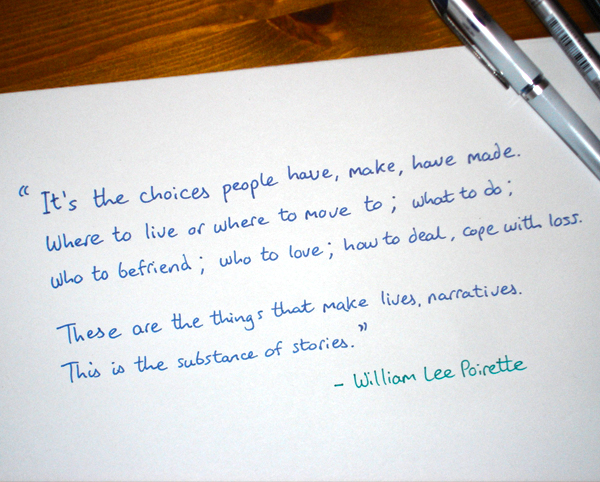 “ It's the choices people have, make, have made.
Where to live or where to move to ; what to do ;
who to befriend ; who to love ; how to deal, cope with loss.
These are the things that make lives, narratives.
This is the substance of stories. ”
- William Lee Poirette